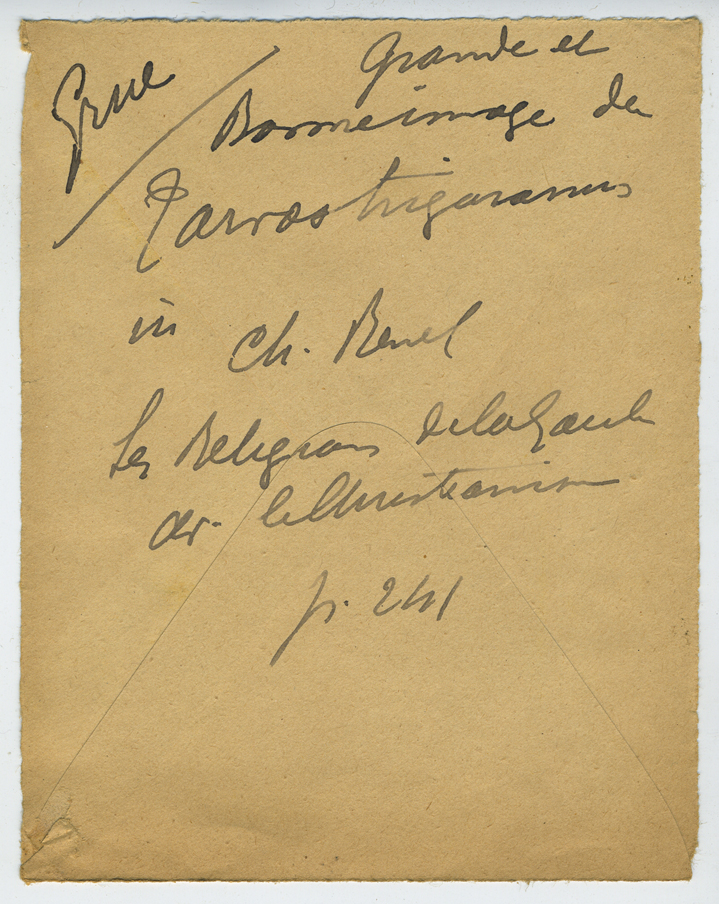 Grue
Grande et
Bonne image du
Tarvos trigaranus
in
Ch. Renel
Les Religions de la Gaule
av. le Christianisme
p. 241